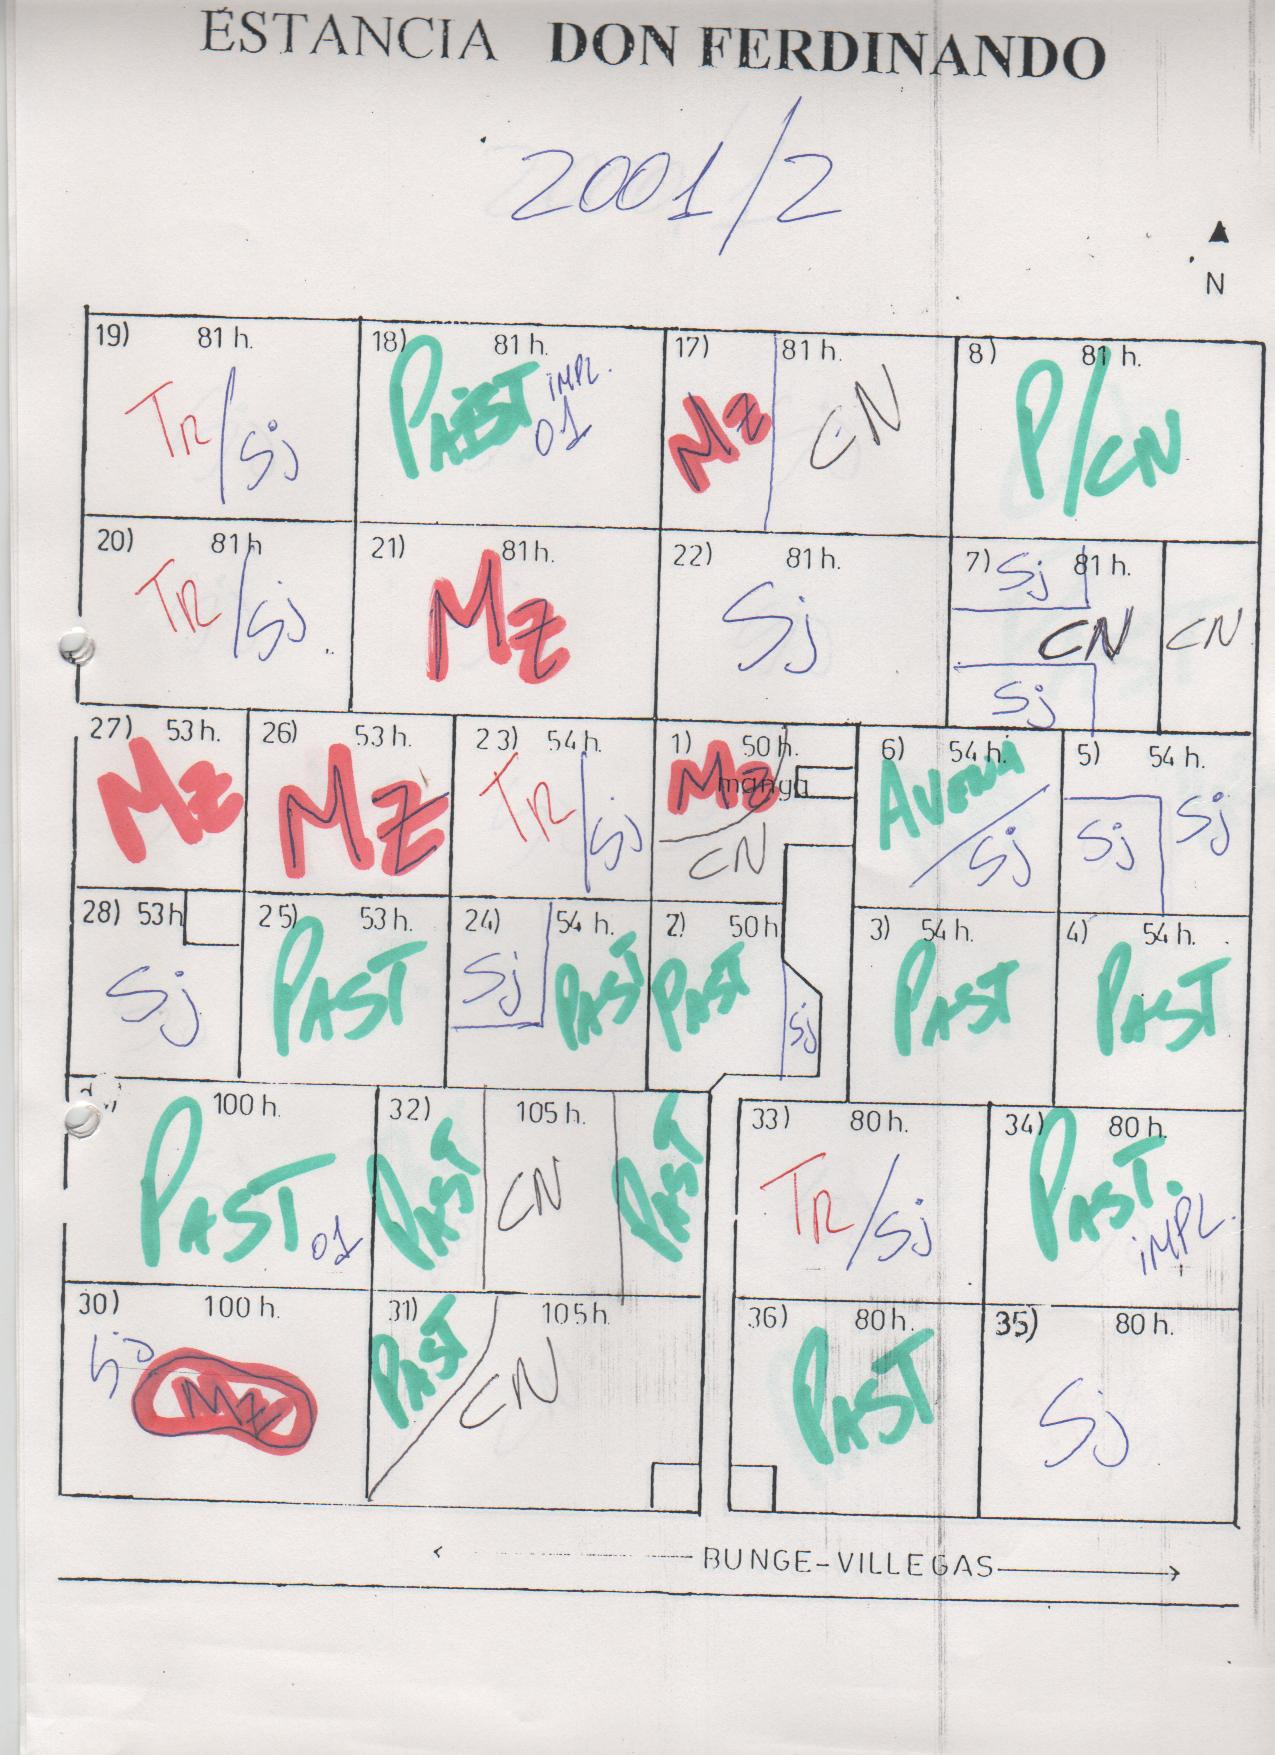 ESTANCIA DON FERDINANDO
2001/2
N
19) 81 h.
TR/Sj
18) 81 h.
PAST IMPL. 01
17) 81 h.
Mz CN
8) 81 h.
P/CN
20) 81 h
TR/Sj
21) 81 h.
Mz
22) 81 h.
Sj
7) Sj 81 h.
CN CN
Sj
27) 53 h.
Mz
26) 53 h.
Mz
23) 54 h.
TR/Sj
1) 50 h.
Mz manga
CN
6) 54 h.
AVENA/Sj
5) 54 h.
Sj Sj
28) 53 h
Sj
25) 53 h.
PAST
24) 54 h.
Sj PAST
2) 50 h
PAST Sj
3) 54 h.
PAST
4) 54 h.
PAST
100 h.
PAST 01
32) 105 h.
PAST CN PAST
33) 80 h.
TR/Sj
34) 80 h.
PAST. iMPL.
30) 100 h.
Sj Mz
31) 105 h.
PAST CN
36) 80 h.
PAST
35) 80 h.
Sj
BUNGE-VILLEGAS